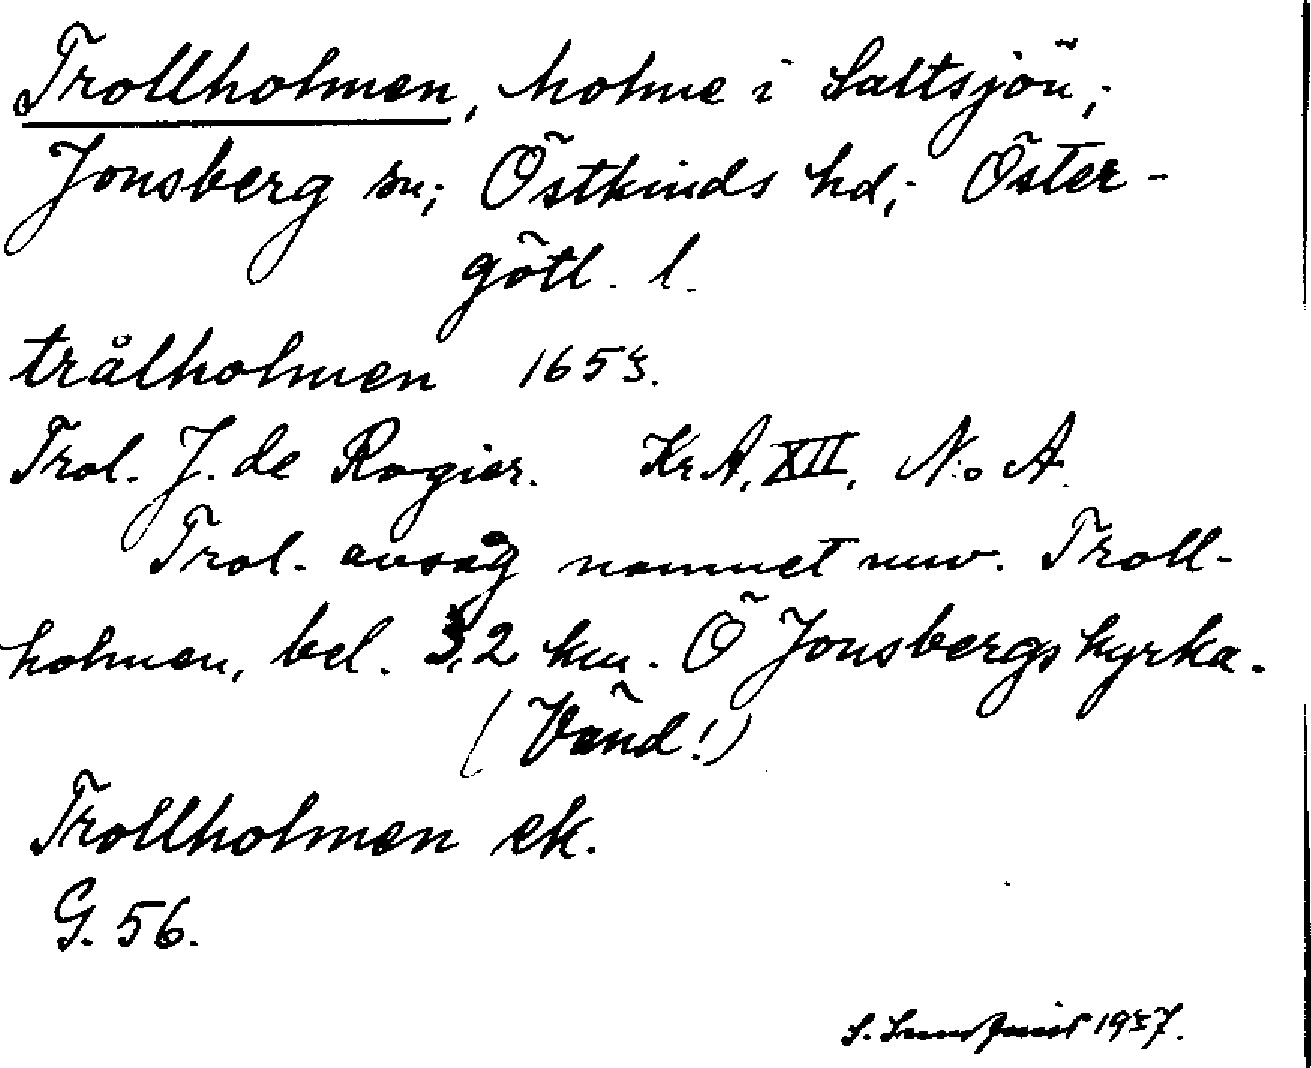 Trollholmen, holme i Saltsjön,
Jonsberg sn; Östkinds hd; Öster-
götl. l.
trålholmen 1653.
Trol. J. de Rogier. Kr.A, XII, N:o A.
Trol. avsåg namnet nuv. Troll-
holmen, bel. 3,2 km. Ö Jonsbergs kyrka.
(Vänd!)
Trollholmen ek.
G. 56.
S. Lundqvist 1937.